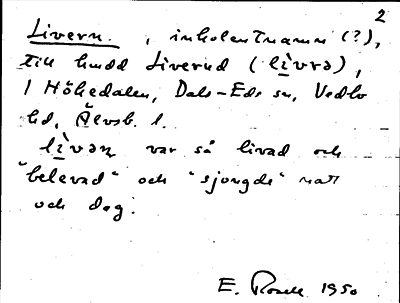 2
Livern. , inkolentnamn (?),
till hmdd Liverud (lìvrə),
i Höhedalen, Dals-Eds sn, Vedbo
hd, Älvsb. l.
lìvən var så livad och
"belevad" och "sjongde" natt
och dag.
E. Rosell 1950